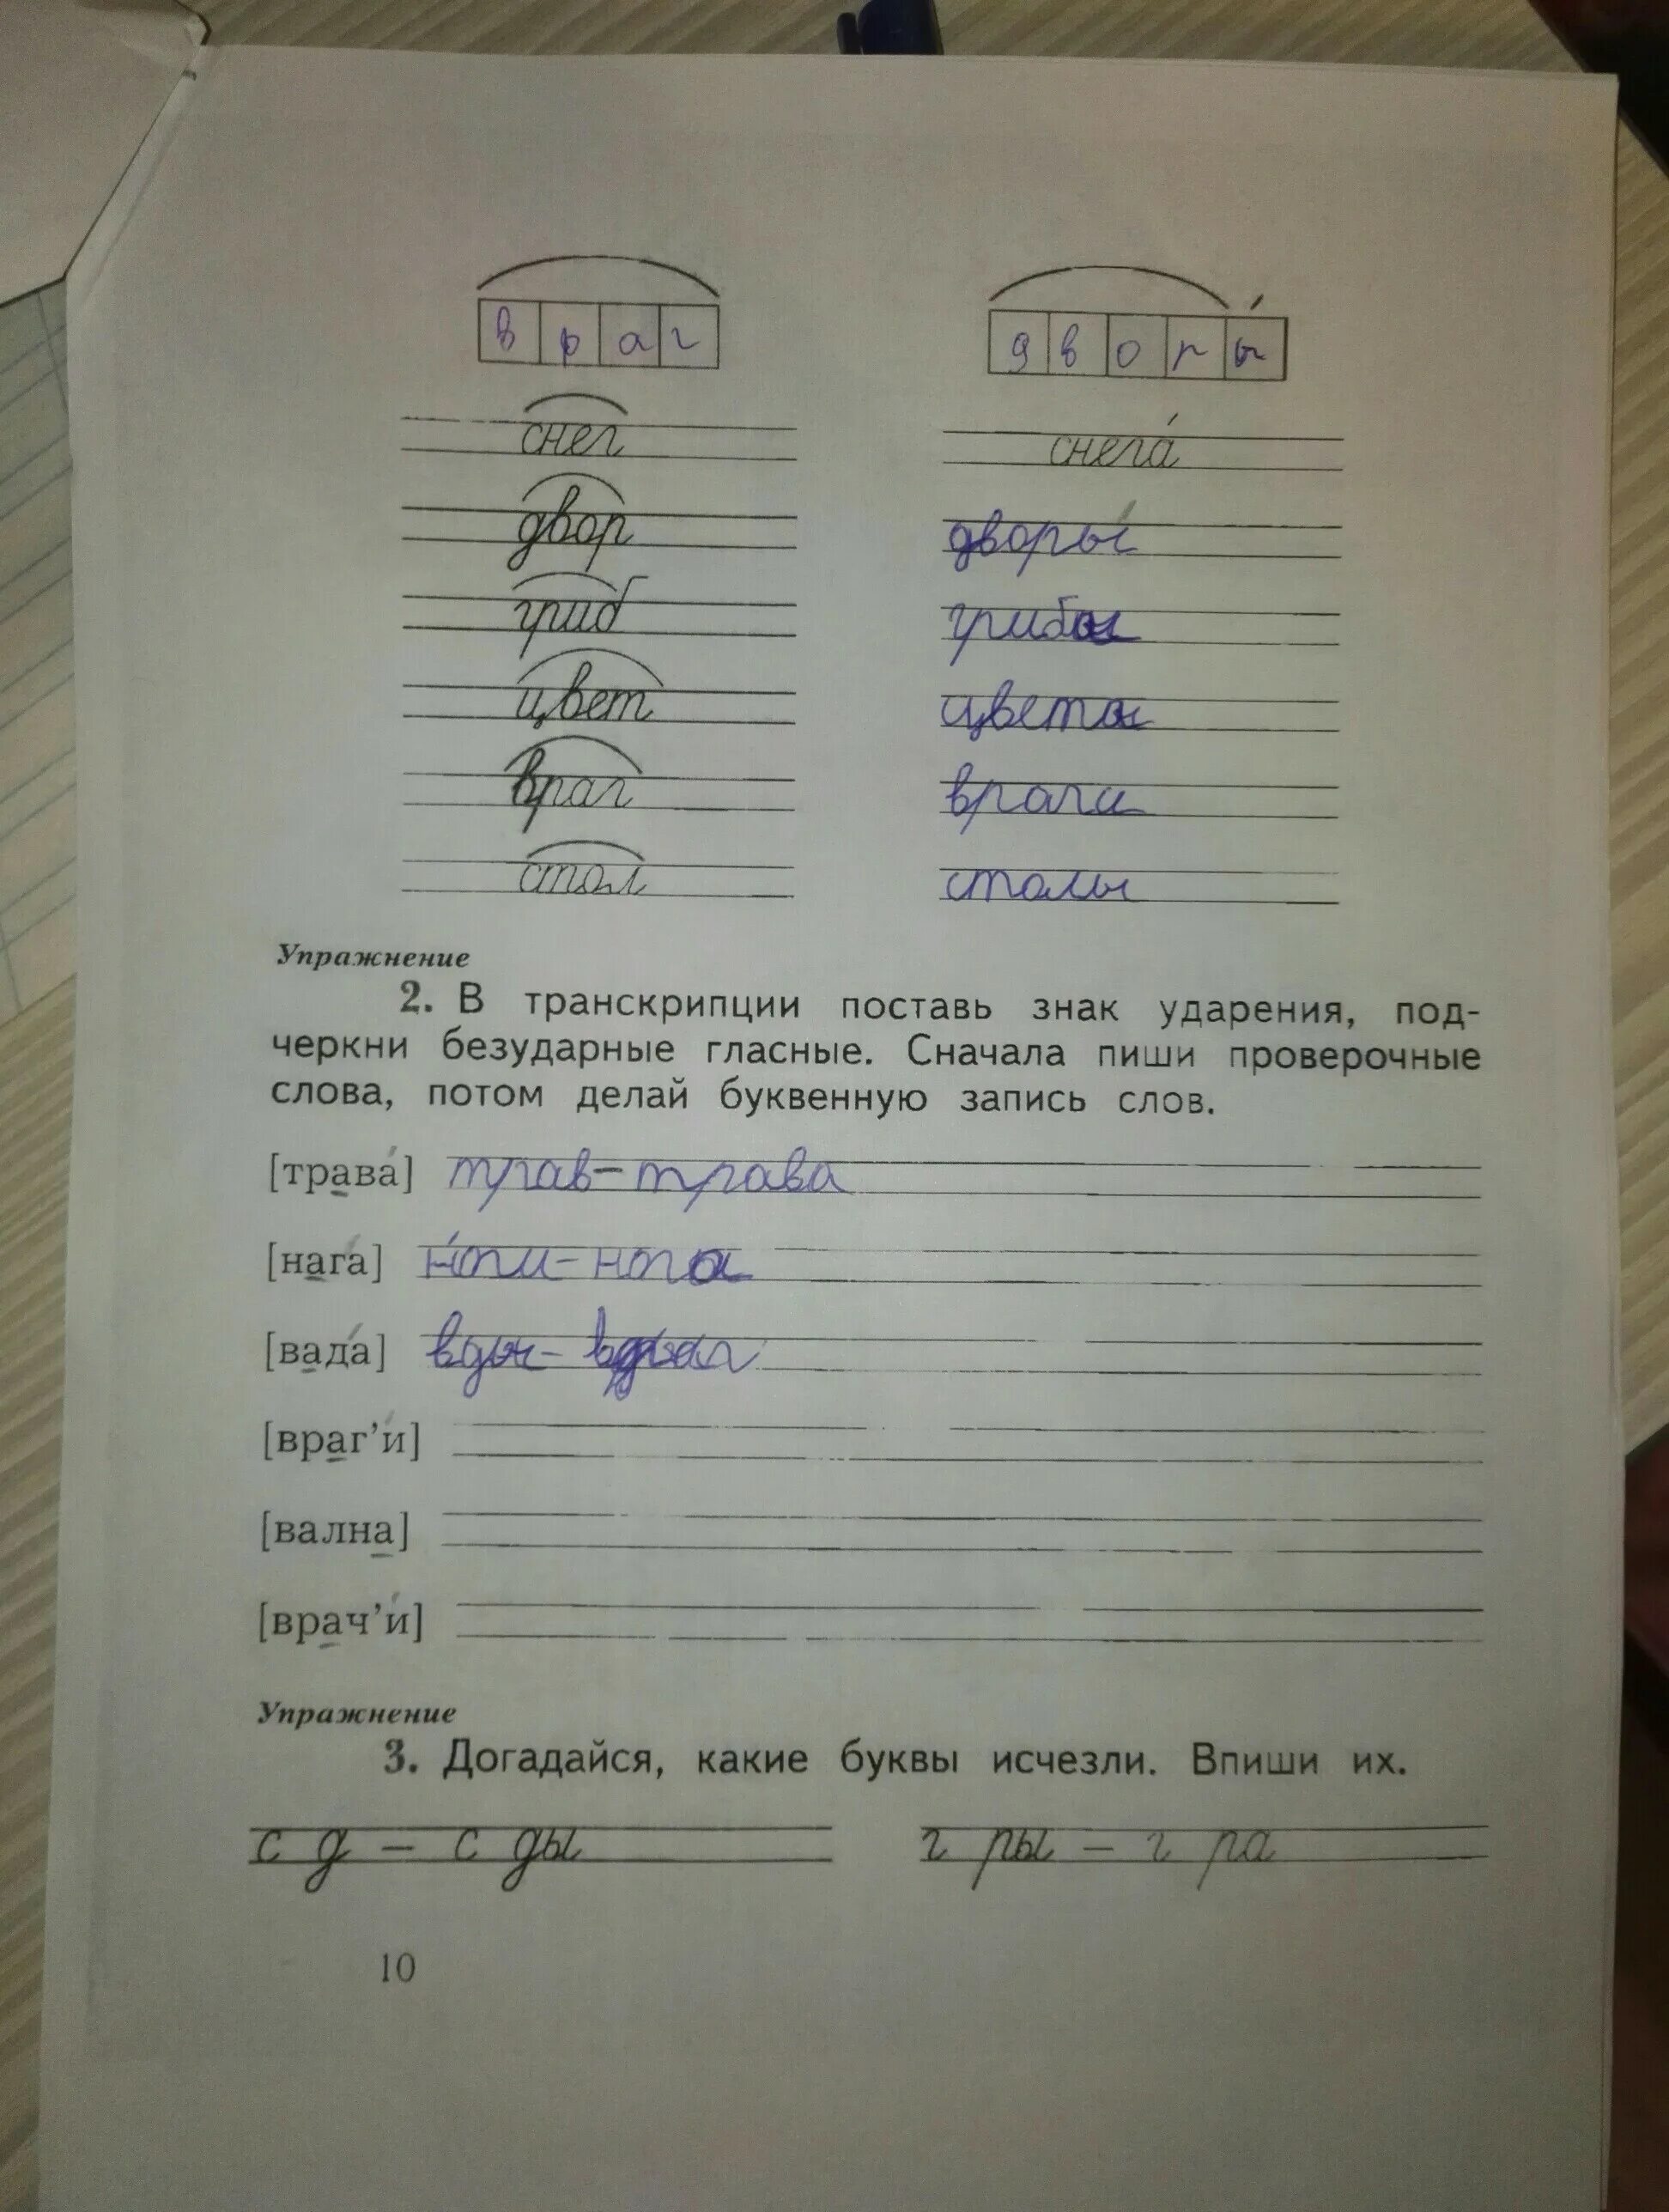 враг дворы
снег снега́
двор дворы́
гриб грибы
цвет цветы
враг враги
стол столы
Упражнение
2. В транскрипции поставь знак ударения, под-
черкни безударные гласные. Сначала пиши проверочные
слова, потом делай буквенную запись слов.
[трава́] трав – трава
[нага́] но́ги – нога
[вада́] вды –
[враг’и́]
[вална]
[врач’и́]
Упражнение
3. Догадайся, какие буквы исчезли. Впиши их.
с д – с ды г ры – г ра
10